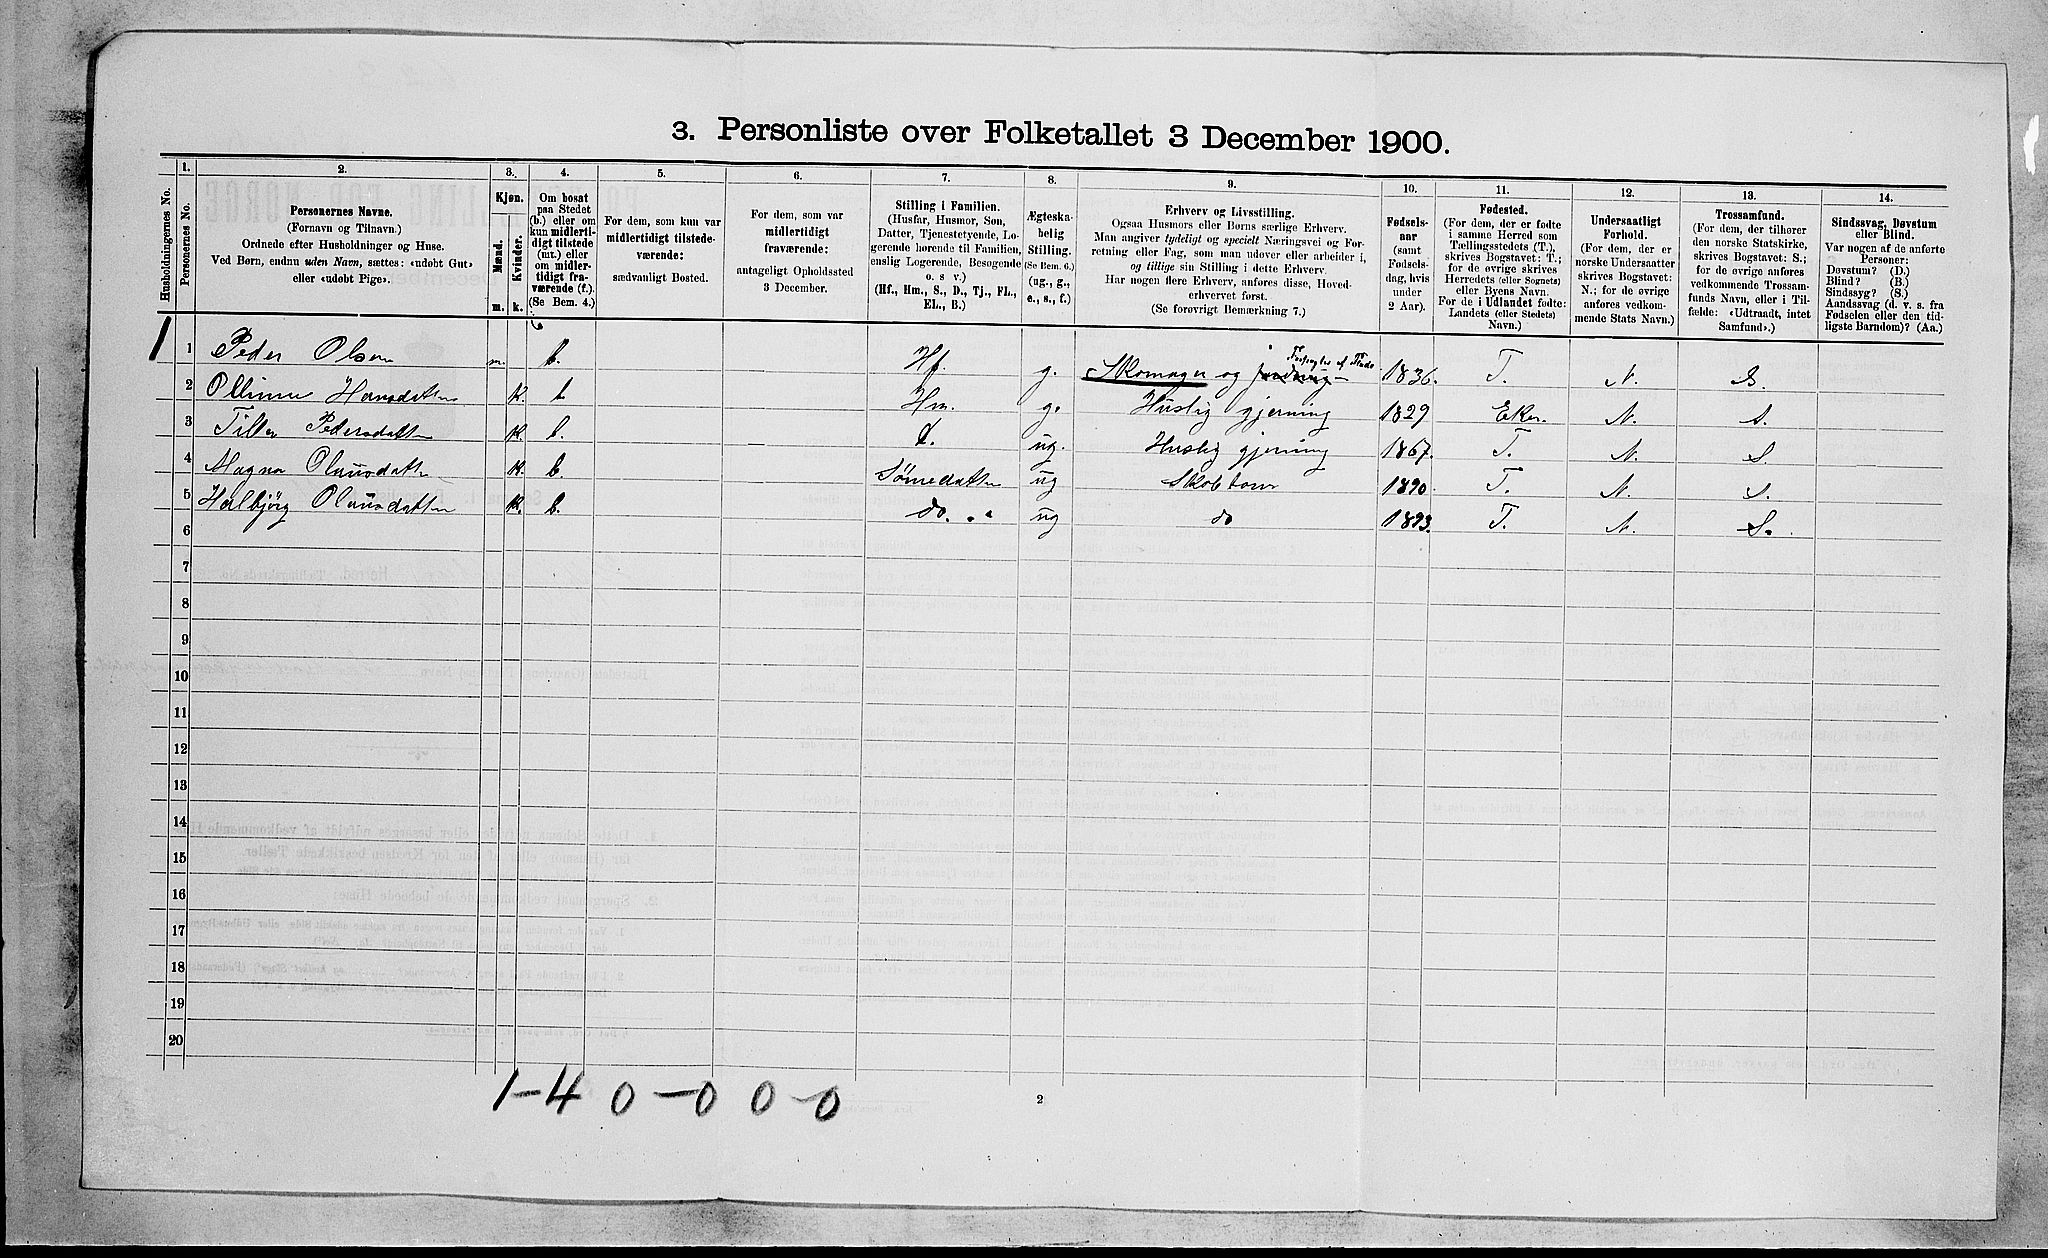 3. Personliste over Folketallet 3 December 1900.
Husholdningernes No.
1.
Personernes No.
2.
Personernes Navne.
(Fornavn og Tilnavn.)
Ordnede efter Husholdninger og Huse.
Ved Børn, endnu uden Navn, sættes: «udøbt Gut»
eller «udøbt Pige».
3.
Kjøn.
Mænd.
Kvinder.
m.
k.
4.
Om bosat
paa Stedet
(b.) eller om
kun midlerti-
digt tilstede
(mt.) eller
om midler-
tidigt fra-
værende (f.).
(Se Bem. 4.)
5.
For dem, som kun var
midlertidigt tilstede-
værende:
sædvanligt Bosted.
6.
For dem, som var
midlertidigt
fraværende:
antageligt Opholdssted
3 December.
7.
Stilling i Familien.
(Husfar, Husmor, Søn,
Datter, Tjenestetyende, Lo-
gerende hørende til Familien,
enslig Logerende, Besøgende
o. s v.)
(Hf., Hm., S., D., Tj., Fl.,
El., B.)
8.
Ægteska-
belig
Stilling.
(Se Bem. 6.)
(ug., g.,
e., s., f.)
9.
Erhverv og Livsstilling.
Ogsaa Husmors eller Børns særlige Erhverv.
Man angiver tydeligt og specielt Næringsvei og For-
retning eller Fag, som man udøver eller arbeider i,
og tillige sin Stilling i dette Erhverv.
Har nogen flere Erhverv, anføres disse, Hoved-
erhvervet først.
(Se forøvrigt Bemærkning 7.)
10.
Fødsels-
aar
(samt
Fødsels-
dag, hvis
under
2 Aar).
11.
Fødested.
(For dem, der er fødte
i samme Herred som
Tællingsstedets (T.),
skrives Bogstavet: T.;
for de øvrige skrives
Herredets (eller Sognets)
eller Byens Navn.
For de i Udlandet fødte:
Landets (eller Stedets)
Navn.)
12.
Undersaatligt
Forhold.
(For dem, der er
norske Undersaatter
skrives Bogstavet:
N.; for de øvrige
anføres vedkom-
mende Stats Navn.)
13.
Trossamfund.
(For dem, der tilhører
den norske Statskirke,
skrives Bogstavet: S.;
for de øvrige anføres
vedkommende Trossam-
funds Navn, eller i Til-
fælde: «Udtraadt, intet
Samfund».)
14.
Sindssvag, Døvstum
eller Blind.
Var nogen af de anførte
Personer:
Døvstum? (D.)
Blind? (B.)
Sindssyg? (S.)
Aandssvag (d. v. s. fra
Fødselen eller den tid-
ligste Barndom)? (Aa.)
1 1 Peder Olsen m. b. Hf. g. Skomager og 1836. T. N. S.
2 Hansdatter k. b Hm. g. Huslig gjerning 1829 Eker. N. S.
3 Pedersdatter k. b. d. ug. Huslig gjerning 1867. T. N. S.
4 Magna Olausdatter k. b. Sønnedatter ug 1890. T. N. S.
5 Halbjörg Olausdatter k. b. do. ug do 1893. T. N. S.
6
7
8
9
10
11
12
13
14
15
16
17
18
19
20
1-4 0-0 0-0
2